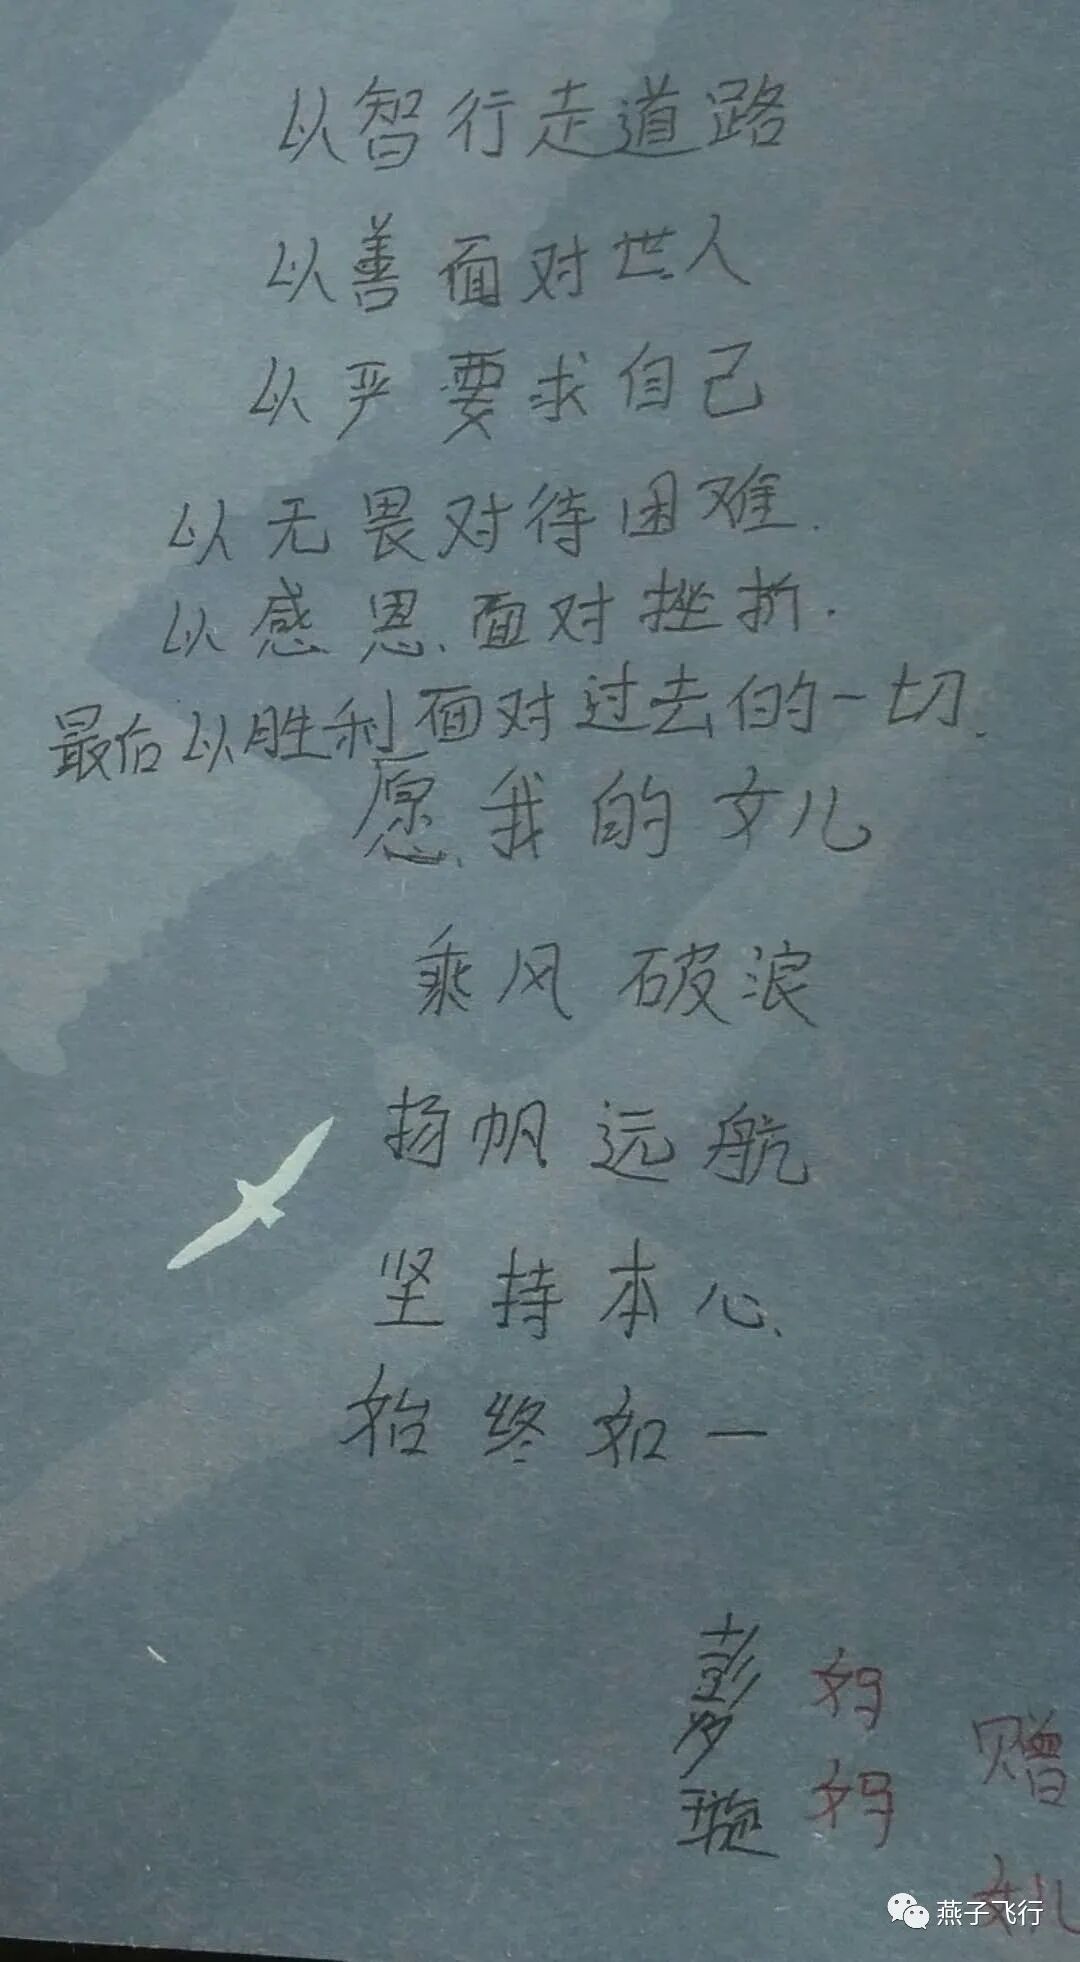 以智行走道路
以善面对世人
以严要求自己
以无畏对待困难.
以感恩、面对挫折.
最后以胜利面对过去的一切.
愿我的女儿
乘风破浪
扬帆远航
坚持本心、
始终如一
彭夕璇
妈妈
赠
女儿
燕子飞行